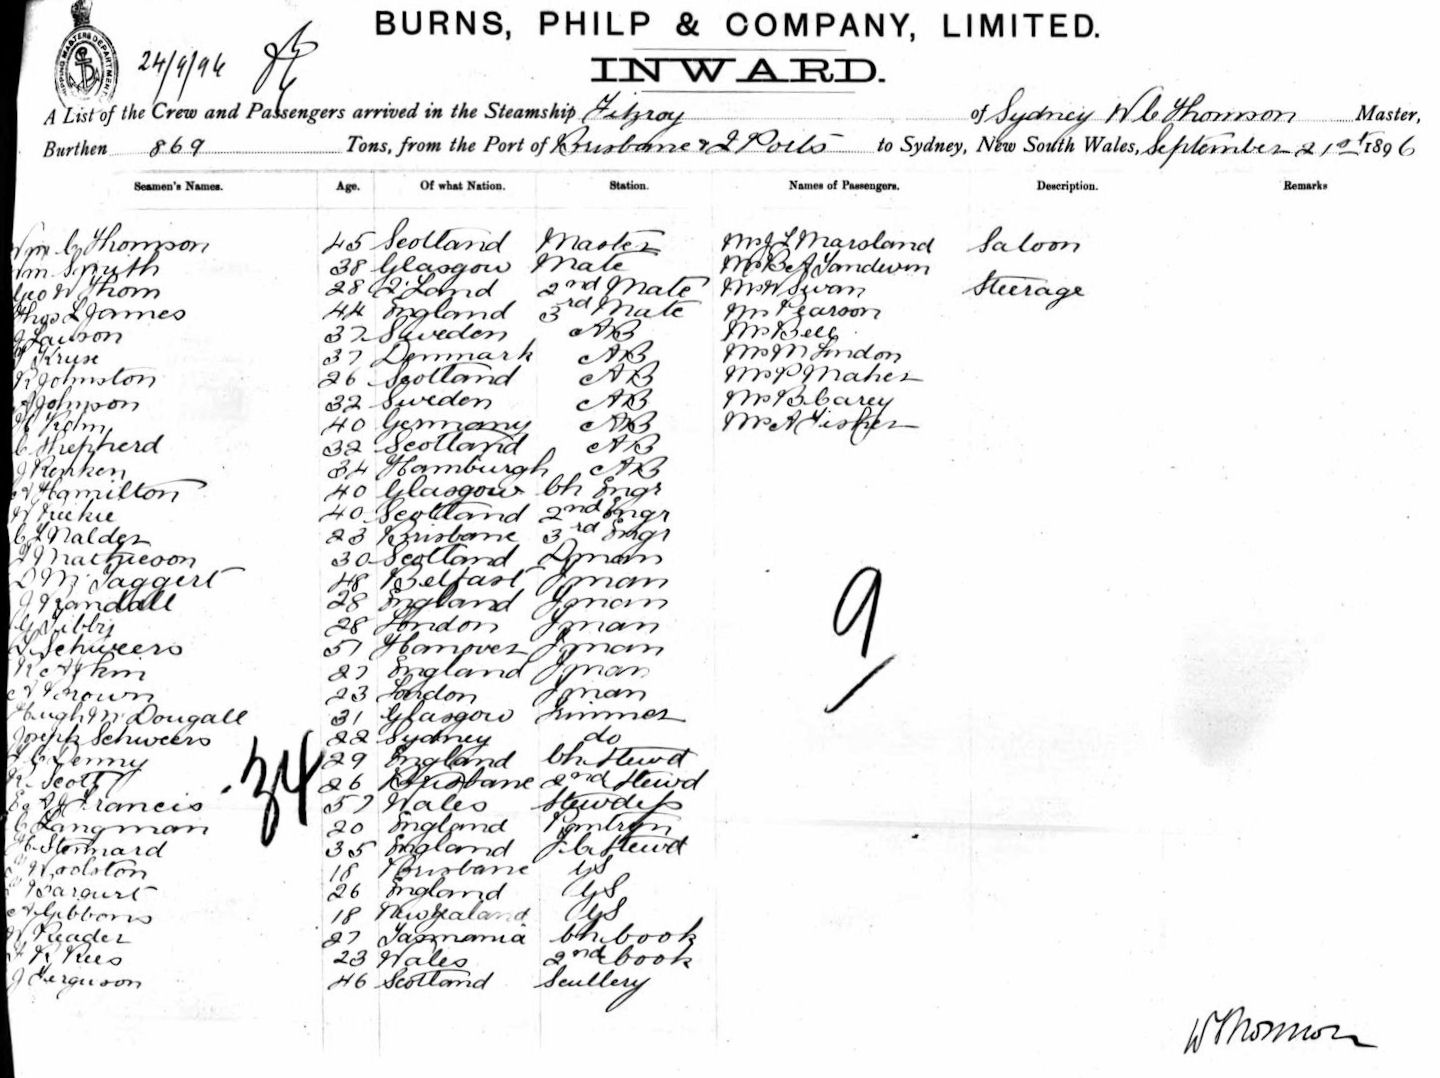 BURNS, PHILP & COMPANY, LIMITED.
SHIPPING MASTERS DEPARTMENT
24/9/96
INWARD.
A List of the Crew and Passengers arrived in the Steamship Fitzroy of Sydney W C Thomson Master,
Burthen 869 Tons, from the Port of Brisbane & Q Ports to Sydney, New South Wales, September 21st 1896
Seamen's Names. Age. Of what Nation. Station. Names of Passengers. Description. Remarks
Wm C Thomson 45 Scotland Master Mr J L Marsland Saloon
Wm Smith 38 Glasgow Mate
Geo W Thom 28 Q'Land 2nd Mate Mr W Swan Steerage
Thos L James 44 England 3rd Mate Mr Pearson
37 Sweden AB Mr Bell
Kruse 37 Denmark AB Mr M London
R Johnston 26 Scotland AB Mr P Maher
A Johnson 32 Sweden AB Mr B Carey
40 Germany AB Mr A Fisher
C Shepherd 32 Scotland AB
J Renken 34 Hamburgh AB
A Hamilton 40 Glasgow Ch Engr
W 40 Scotland 2nd Engr
C L Nalder 23 Brisbane 3rd Engr
Mathieson 30 Scotland Dman
D McTaggert 48 Belfast Fman
J Randall 28 England Fman
G Libby 28 London Fman
Schweers 51 Hanover Fman
27 England Fman
A Brown 23 London Fman
Hugh McDougall 31 Glasgow Trimmer
Joseph Schweers 22 Sydney do
Denny 29 England Ch Stewd
R Scott 26 Brisbane 2nd Stewd
Francis 57 Wales Stewdess
C Langman 20 England Pantrym
H Stennard 35 England F.C. Stewd
Woolston 18 Brisbane GS
26 England GS
A Gibbons 18 New Zealand GS
W Reader 27 Tasmania Ch Cook
R Rees 23 Wales 2nd Cook
J Ferguson 46 Scotland Scullery
34
9
W Thomson